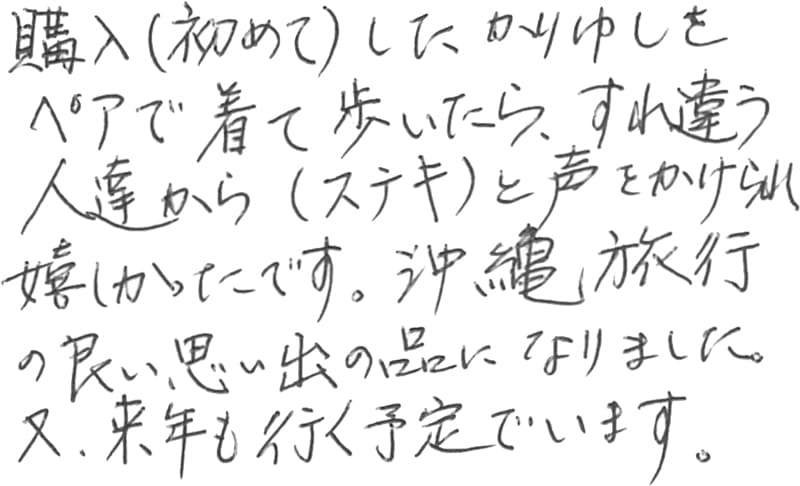 購入(初めて)した、かりゆしを
ペアで着て歩いたら、すれ違う
人達から(ステキ)と声をかけられ
嬉しかったです。沖縄旅行
の良い思い出の品になりました。
又、来年も行く予定でいます。